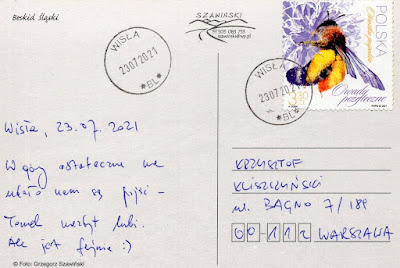 Beskid Śląski
SZAWIŃSKI
WISŁA
23072021
*BL*
WISŁA
23072021
*BL*
POLSKA
Owady pożyteczne
Wisła, 23.07.2021
W góry ostatecznie nie
udało nam się pójść –
Tomek niezbyt lubi.
Ale jest fajnie :)
KRZYSZTOF
KLISZCZYŃSKI
ul. BAGNO 7/189
00-112 WARSZAWA
© Foto: Grzegorz Szawiński